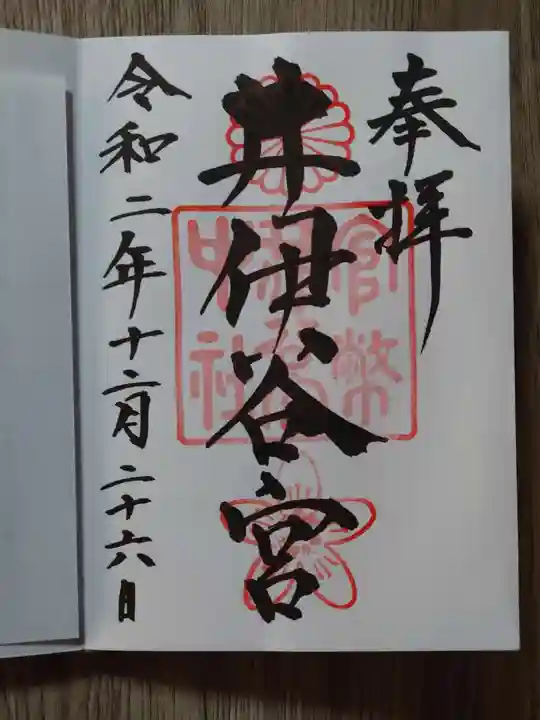 奉拝
井伊谷宮
官幣
中社
令和二年十二月二十六日